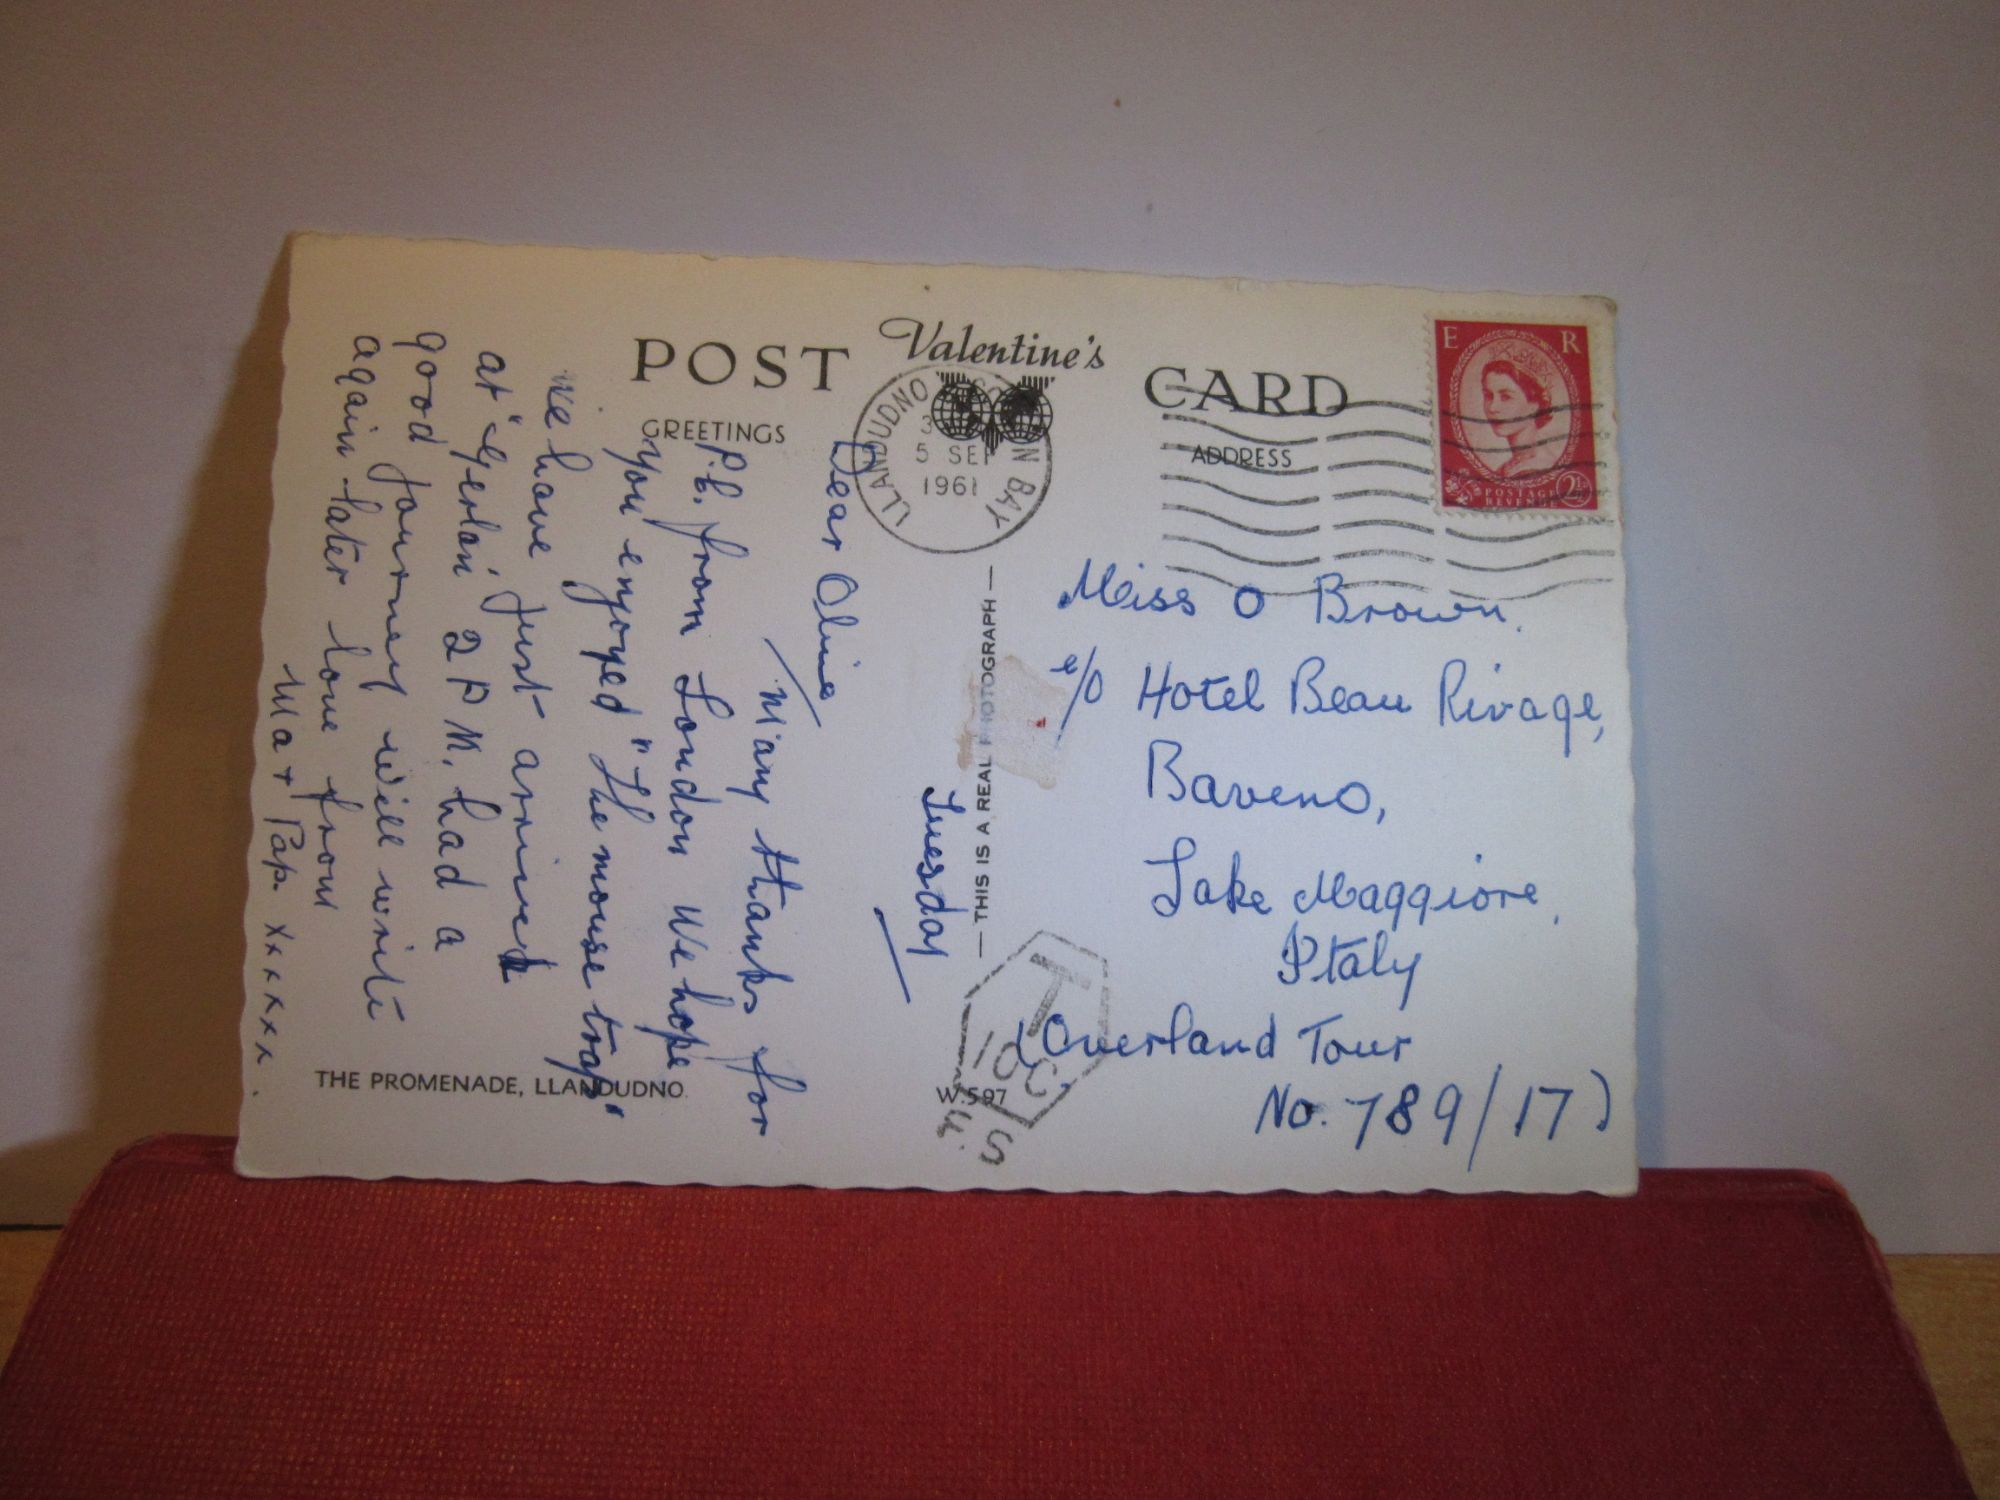 POST Valentine's CARD
GREETINGS
ADDRESS
LLANDUDNO BAY
5 SEP
1961
E R
POSTAGE
REVENUE
2½
Tuesday
Dear Olive
Many thanks for
P.C. from London We hope
you enjoyed "The mouse trap"
We have just arrived
at "Gerlan" 2 P M. had a
good journey will write
again later love from
Ma + Pap. xxxxx.
THE PROMENADE, LLANDUDNO.
W.597
— THIS IS A REAL PHOTOGRAPH —
Miss O Brown.
c/o Hotel Beau Rivage,
Baveno,
Lake Maggiore,
Italy
(Overland Tour
No. 789/17)
T
10C